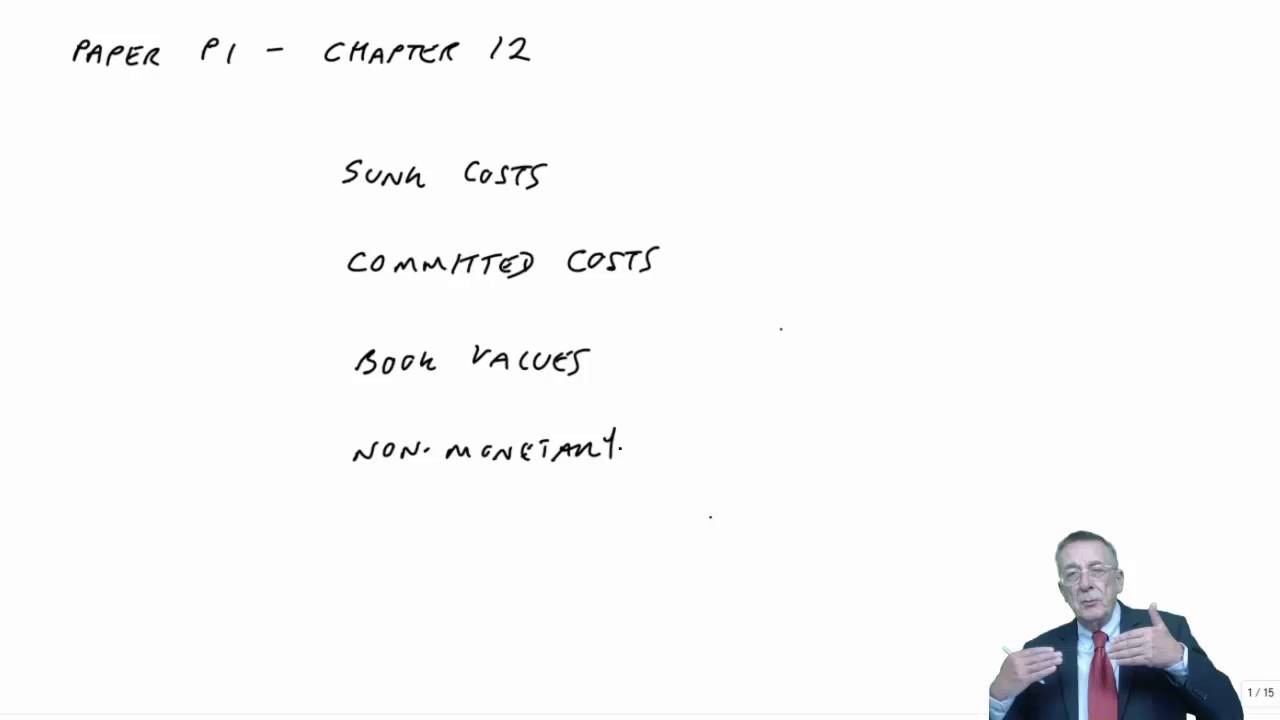 PAPER P1 - CHAPTER 12
SUNK COSTS
COMMITTED COSTS
BOOK VALUES
NON-MONETARY.
1 / 15